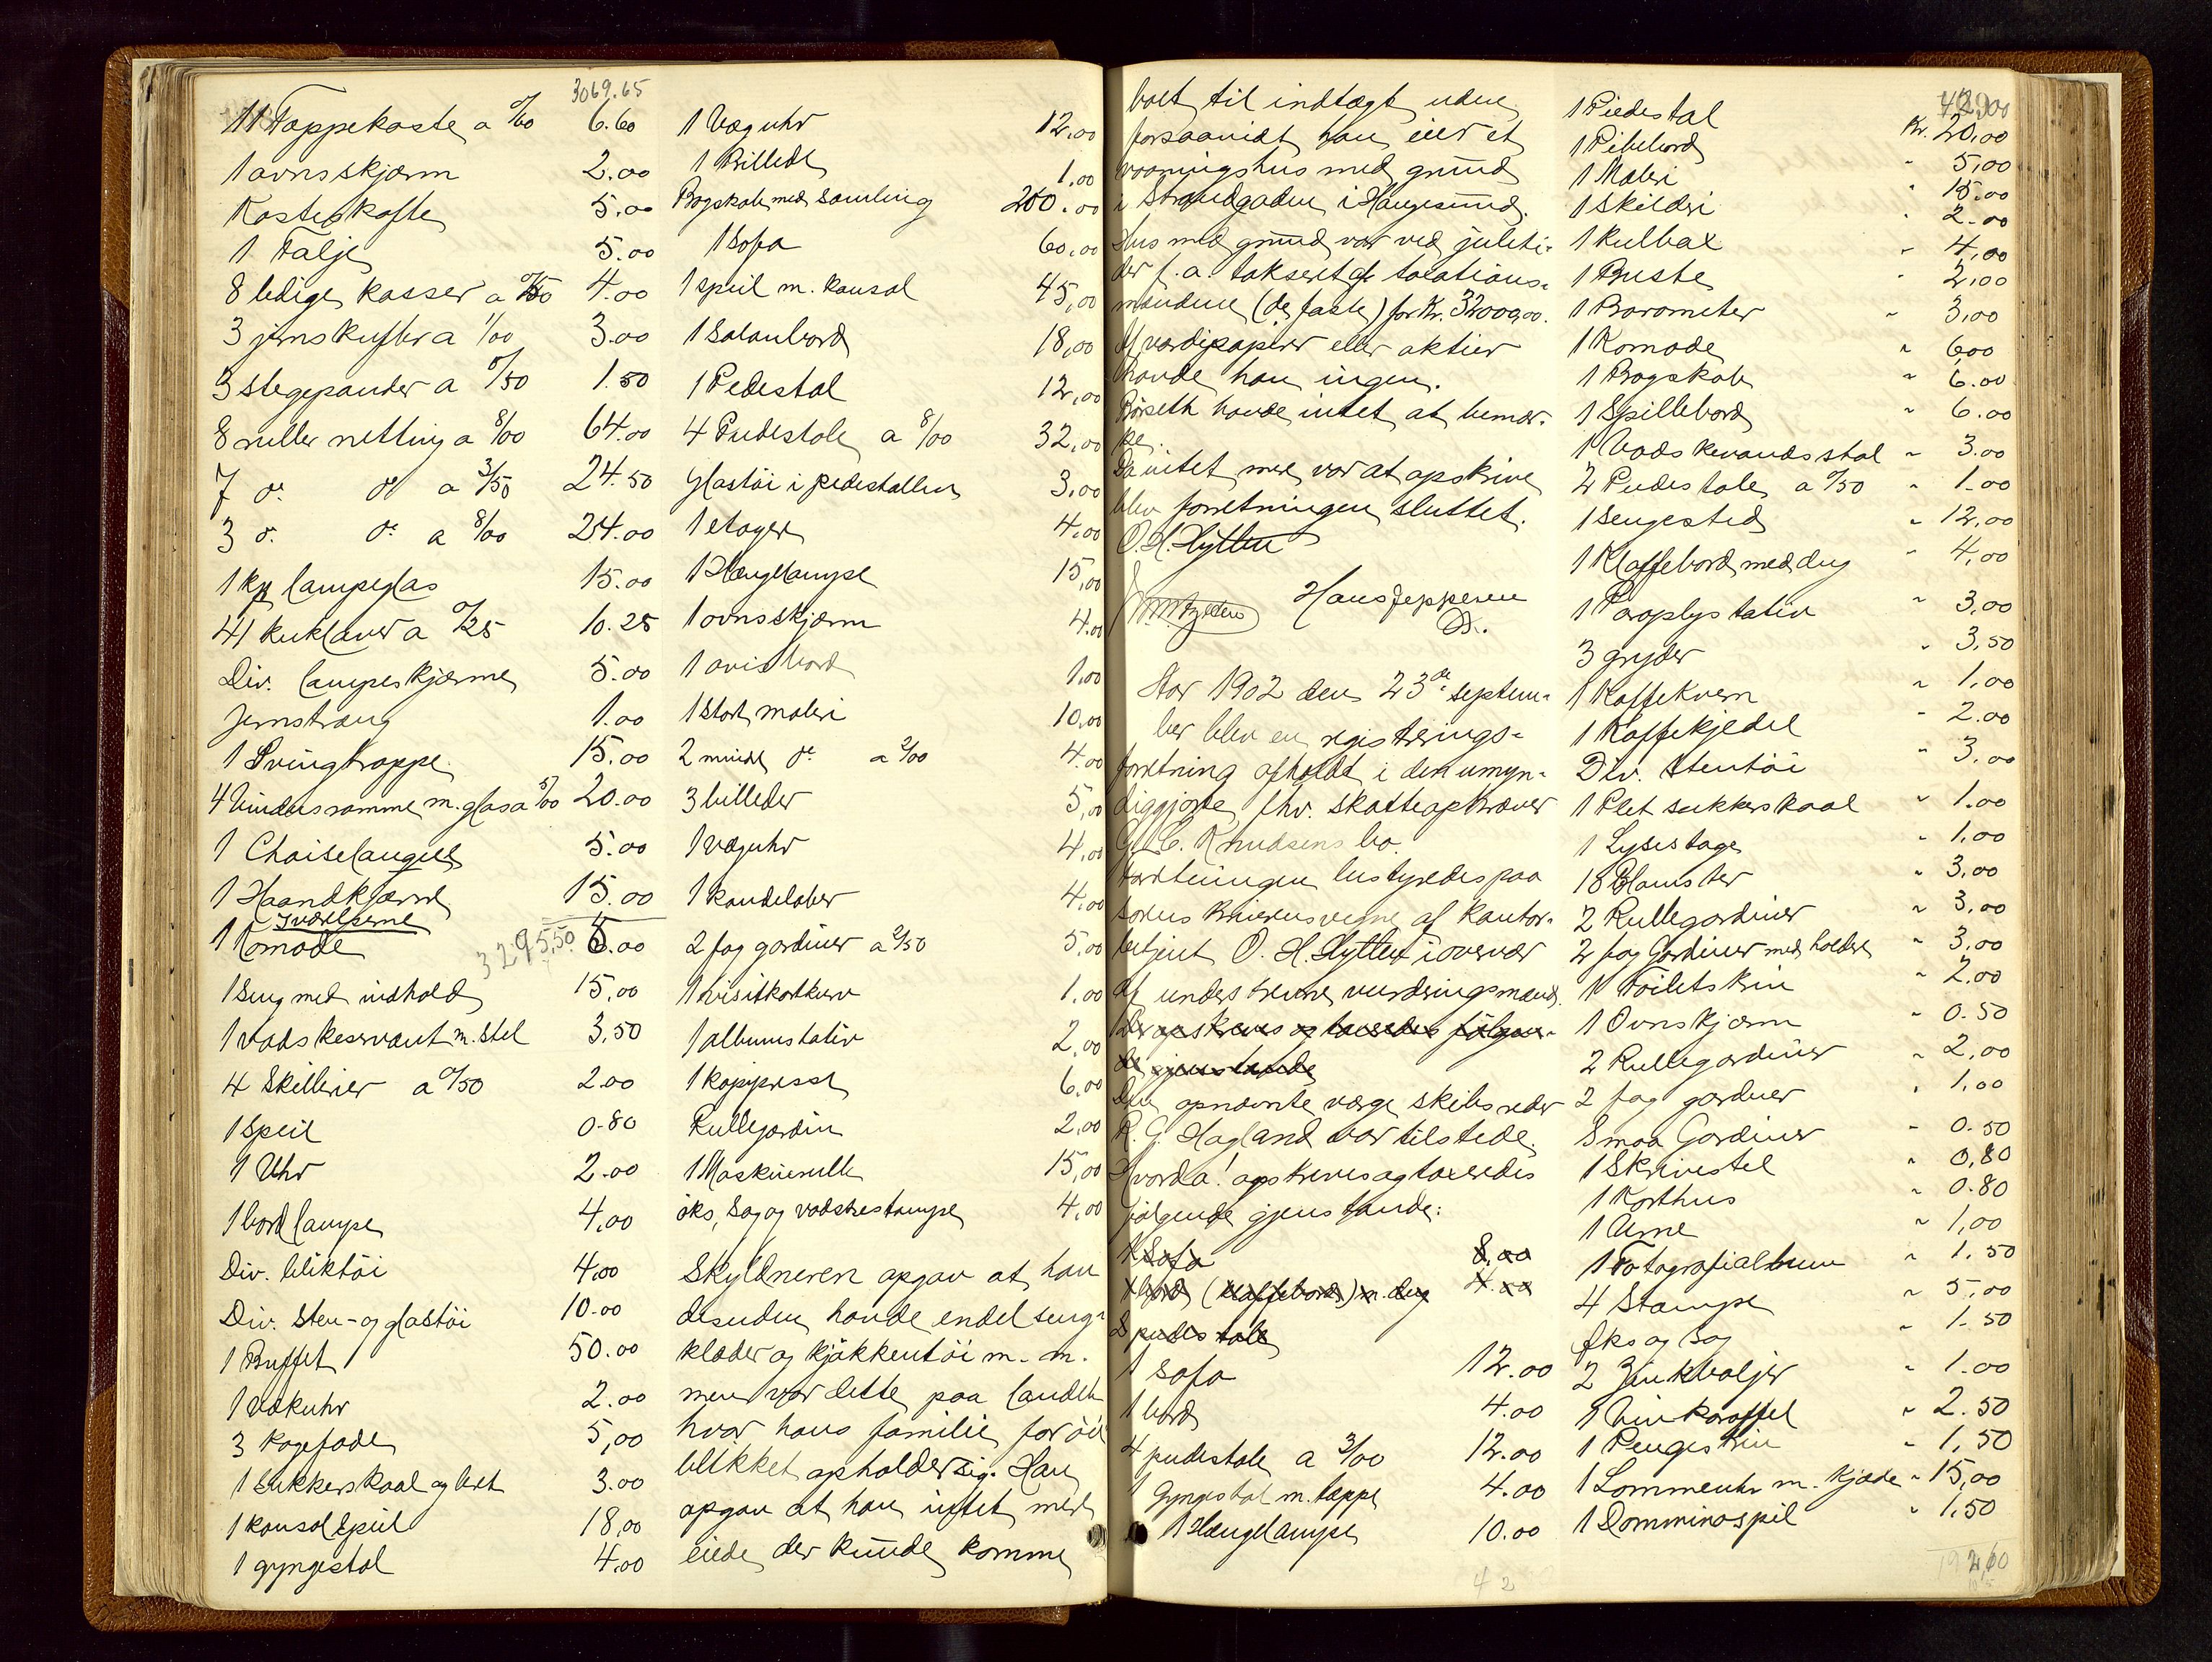 3069.65
11 Tappekaste a 0/60 6.60
1 ovnsskjærm 2.00
Kosteskafte 5.00
1 Talje 5.00
8 ledige kasser a 0/50 4.00
3 jernskufler a 1/00 3.00
3 stegepander a 0/50 1.50
8 ruller netting a 8/00 64.00
7 do. do a 3/50 24.50
3 do. do. a 8/00 24.00
1 kp lampeglas 15.00
41 kuklaver a 0/25 10.25
Div. lampeskjærme 5.00
Jernstrang 1.00
1 Svingtrappe 15.00
4 Vinduesramme m. glas a 5/00 20.00
1 Chaiselaugue 5.00
1 Haandkjærre 15.00
Iværelserne
1 Komode 3295,50 6.00
1 Seng med indhold 15,00
1 vadskeservant m. stel 3,50
4 Skillerier a 0/50 2.00
1 Speil 0.80
1 Uhr 2.00
1 bordlampe 4,00
Div. bliktöi 4,00
Div. Sten- og glastöi 10.00
1 Buffet 50.00
1 vækuhr 2.00
3 Kagefade 5,00
1 Sukkerskaal og bret 3.00
1 konsolspeil 18,00
1 gyngestol 4,00
1 Væguhr 12,00
1 Billede 1.00
Bogskab med samling 200.00
1 Sofa 60,00
1 speil m. konsol 45,00
1 Salonbord 18,00
1 Pedestal 12,00
4 Pudestole a 8/00 32,00
Glastöi i pedestallen 3,00
1 etager 4,00
1 Hængelampe 15,00
1 ovnsskjærm 4.00
1 avisbord 1,00
1 stort maleri 10,00
2 mindre do a 2/00 4.00
3 billeder 5,00
1 væguhr 4,00
1 kandelaber 4.00
2 fag gardiner a 2/50 5,00
1 visitkortkurv 1.00
1 albumstativ 2,00
1 kopipresse 6,00
Rullegardin 2,00
1 Maskinrulle 15,00
öks, Sag og vadskestampe 4,00
Skyldneren opgav at han
desuden havde endel seng-
klæder og kjökkentöi m. m.
men var dette paa landet
hvor hans familie for öie
blikket opholder sig. Han
opgav at han intet mere
eiede, der kunde komme
boet til indtægt uden
forsaavidt han eier et
vaaningshus med grund
i Strandgaden i Haugesund.
Hus med grund var ved juleti-
der f. a. takseret af taxations-
mændene (de faste) for Kr. 32000,00.
Af værdipapirer eller aktier
havde han ingen.
Börseth havde intet at bemær-
ke.
Da intet mere var at opskrive
blev forretningen sluttet.
O. H. Hytten
Hans Jeppesen
Aar 1902 den 23de septem-
ber blev en registrerings-
forretning afholdt i den umyn-
diggjorte fhv. skatteopkræver
G. C. Knudsens bo.
Forretningen bestyredes paa
sorenskriverens vegne af kontor-
betjent O. H. Hytten i overvær
af underskrevne vurderingsmænd.
Der opskreves og taxeredes fölgen-
de gjenstande
Den opnævnte værge skibsreder
R. G. Hagland var tilstede.
Hvorda! opskreves og taxeredes
fölgende gjenstande:
1 Sofa 8,00
1 bord (klaffebord) m. dug 4.00
2 pudestole
1 Sofa 12.00
1 bord 4.00
4 pudestole a 3/00 12.00
1 Gyngestol m. tæppe 4.00
1 Hængelampe 10.00
42
42,00
1 Piedestal Kr. 20,00
1 Pibebord " 5,00
1 Maleri " 15.00
1 Skilderi " 2.00
1 Kulbax " 4,00
1 Buste " 2,00
1 Barometer " 3,00
1 Komode " 6,00
1 Bogskab " 6.00
1 Spillebord " 6.00
1 Vadskevandsstal " 3.00
2 Pudestole a 0/50 " 1.00
1 Sengested " 12,00
1 Klaffebord med dug " 4,00
1 Paraplystativ " 3,00
3 gryder " 3,50
1 Kaffekvern " 1,00
1 Kaffekjedel " 2.00
Div. Stentöi " 3,00
1 Plet sukkerskaal " 1.00
1 Lysestage " 1,00
18 Blomster " 3,00
2 Rullegardiner " 3,00
2 fag Gardiner med holdere " 3,00
1 Toiletskrin " 2,00
1 Ovnskjærm " 0.50
2 Rullegardiner " 2,00
2 fag gardiner " 1,00
Smaa Gardiner " 0.50
1 Skrivestel " 0,80
1 Korthus " 0.80
1 Urne " 1,00
1 Fotografialbum " 1.50
4 Stamper " 5,00
Öks og Sag " 1.50
2 Zinkbaljer " 1.00
1 Vinkaraffel " 2.50
1 Pengeskrin " 1,50
1 Lommeuhr m. kjæde " 15,00
1 Domminospil " 1,50